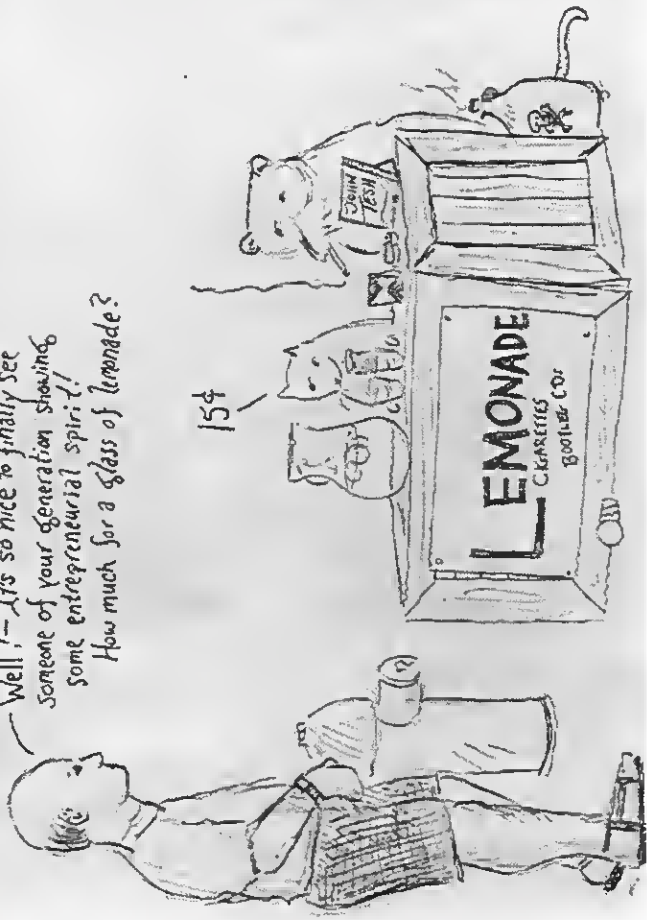 Well! - It's so nice to finally see
someone of your generation showing
some entrepreneurial spirit!
How much for a glass of lemonade?
15¢
JOHN
TESH
LEMONADE
CIGARETTES
BOOTLEG CDs